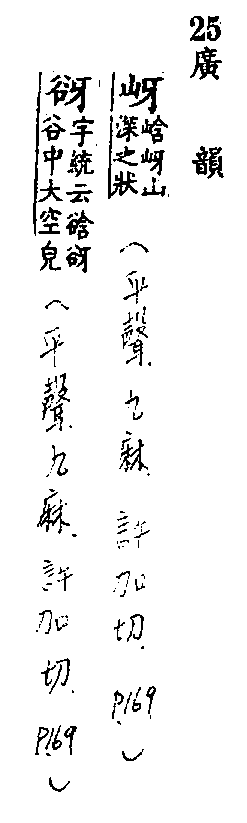 25廣韻
岈㟏岈山深之狀（平聲九麻 許加切 P.169）
谺字統云谽谺谷中大空皃（平聲九麻 許加切 P.169）